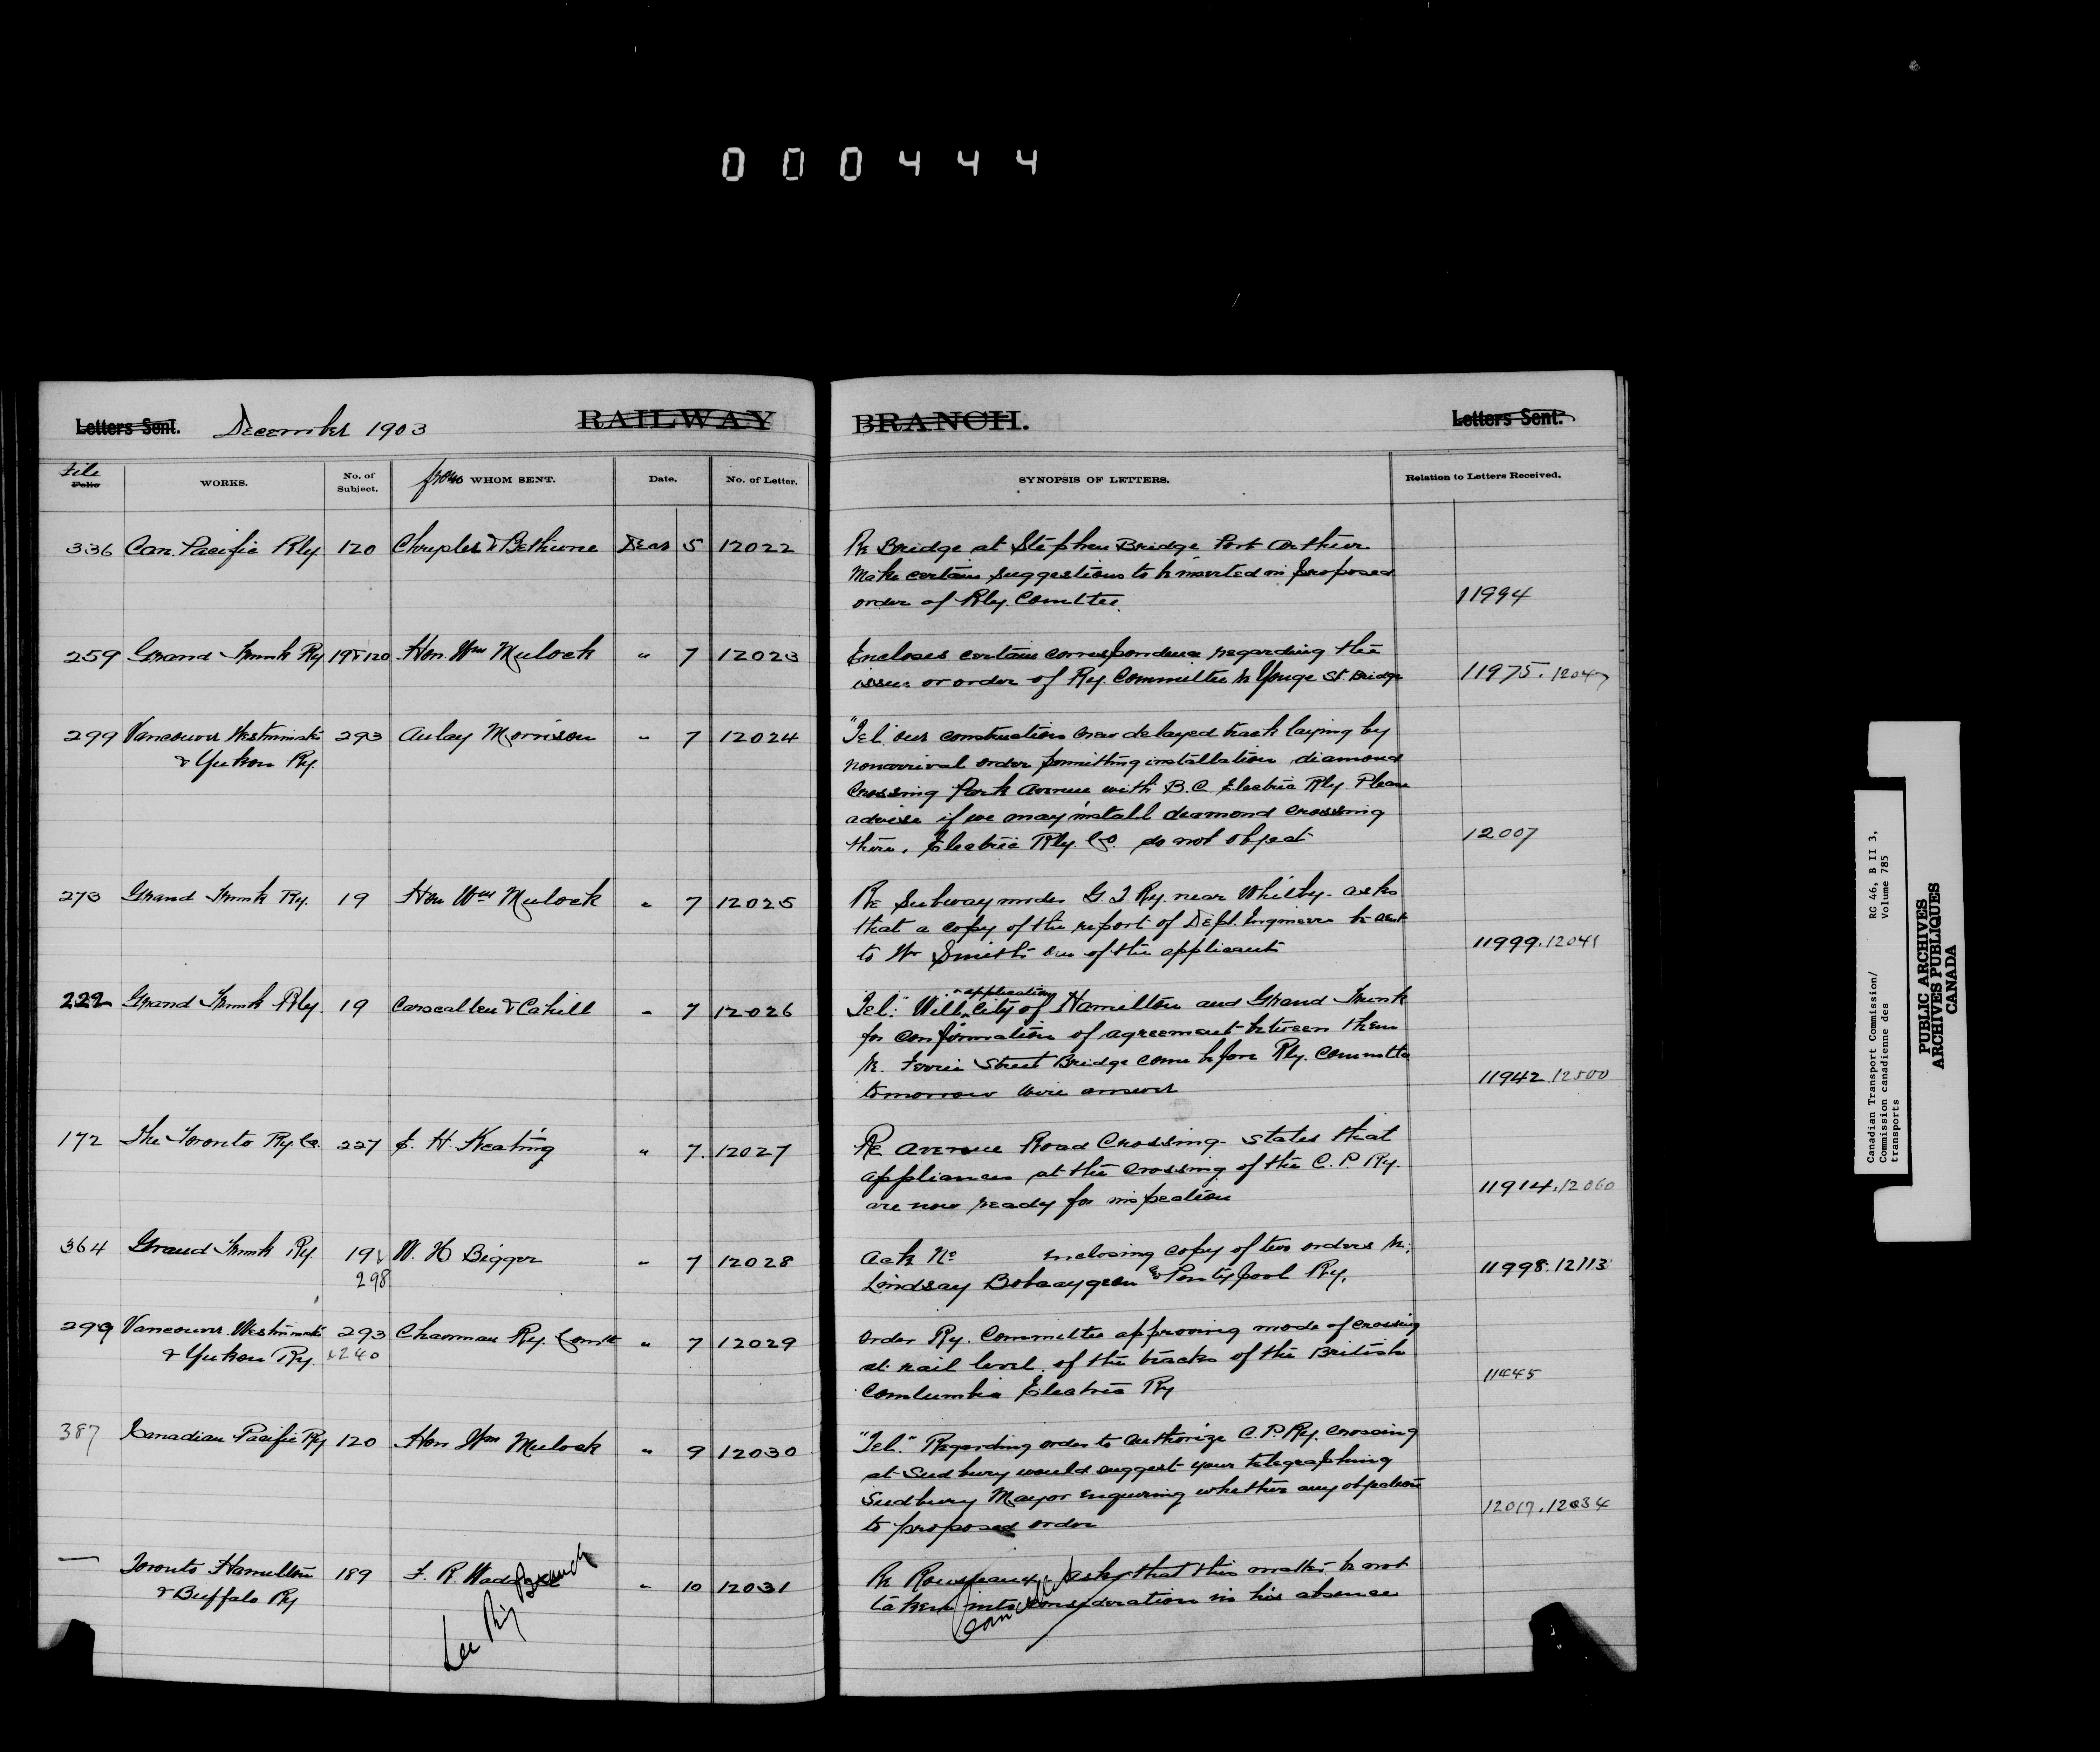 000444
Letters Sent. December 1903 RAILWAY BRANCH. Letters Sent.
File
Folio WORKS. No. of Subject. from WHOM SENT. Date. No. of Letter. SYNOPSIS OF LETTERS. Relation to Letters Received.
336 Can. Pacific Rly 120 Chrysler & Bethune Decr 5 12022 Re Bridge at Stephen Bridge Port Arthur
Make certain suggestions to be inserted in proposed
order of Rly. Comttee. 11994
259 Grand Trunk Ry 19 & 120 Hon. Wm Mulock " 7 12023 Encloses certain correspondence regarding the
issue or order of Ry. Committee re Yonge St. Bridge 11975. 12047
299 Vancouver Westminster 293 Aulay Morrison " 7 12024 "Tel. our construction crew delayed track laying by
& Yukon Ry. nonarrival order permitting installation diamond
crossing Park Avenue with B.C. Electric Rly. Please
advise if we may install deamond crossing
there. Electric Rly. Co. do not object 12007
273 Grand Trunk Ry. 19 Hon Wm Mulock " 7 12025 Re Subway under G.T. Ry. near Whitby. asks
that a copy of the report of Dept. Engineer be sent
to Mr Smith one of the applicants 11999. 12041
222 Grand Trunk Rly. 19 Carscallen & Cahill " 7 12026 Tel: "Will application City of Hamilton and Grand Trunk
for confirmation of agreement between them
re. Ferrie Street Bridge come before Rly. Committee
tomorrow wire answer 11942. 12500
172 The Toronto Ry. Co. 227 E. H. Keating " 7. 12027 Re Avenue Road Crossing. States that
appliances at the crossing of the C. P. Ry.
are now ready for inspection 11914. 12060
364 Grand Trunk Ry. 19 & W. H Bigger " 7 12028 Ack No enclosing copy of two orders re:
298 Lindsay Bobcaygeon & Pontypool Ry. 11998. 12113
299 Vancouver Westminster 293 Chairman Ry. Comtt " 7 12029 Order Ry. Committee approving mode of crossing
& Yukon Ry. & 240 at rail level of the tracks of the British
Comlumbia Electric Ry 11445
387 Canadian Pacific Ry 120 Hon Wm Mulock " 9 12030 "Tel." Regarding order to authorize C.P. Ry. crossing
at Sudbury would suggest your telegraphing
Sudbury Mayor enquiring whether any objection
to proposed order 12017. 12034
— Toronto Hamilton 189 F. R. " 10 12031 Re asks that this matter be not
& Buffalo Ry taken into consideration in his absence
See Ry Branch
Cancelled
Canadian Transport Commission/ RG 46, B II 3,
Commission canadienne des Volume 785
transports
PUBLIC ARCHIVES
ARCHIVES PUBLIQUES
CANADA